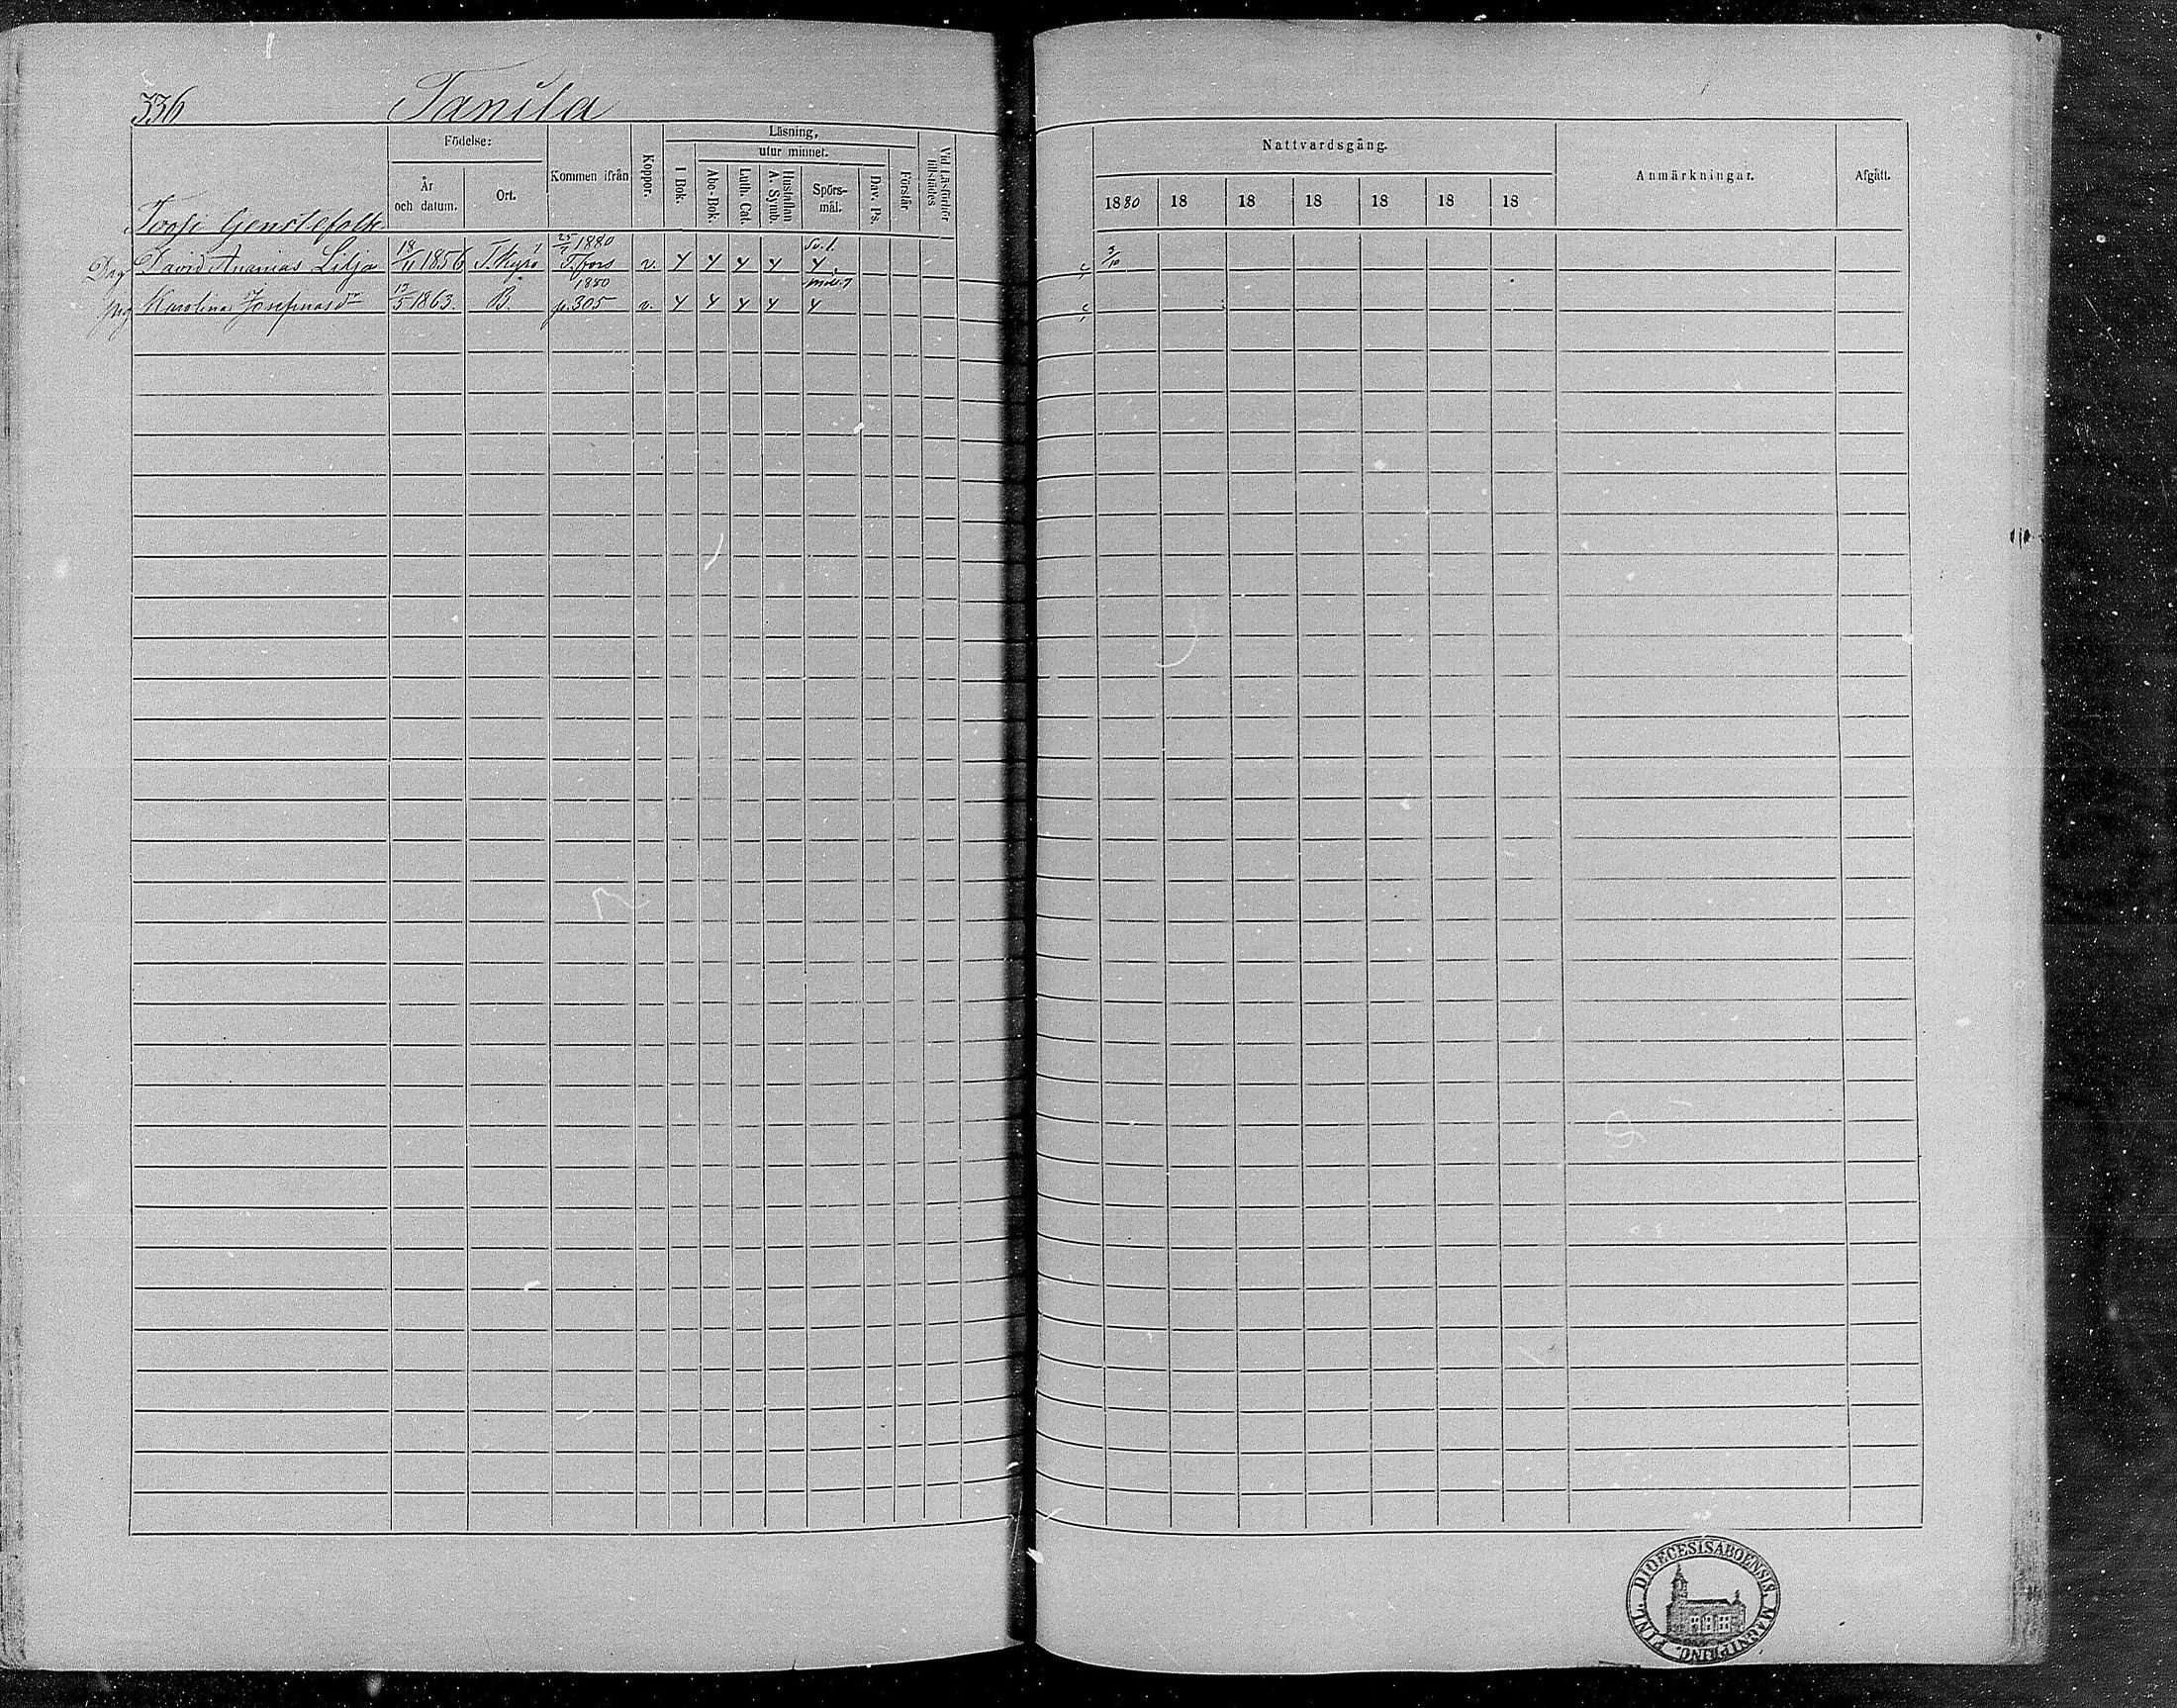 336 Tanila
Födelse:
År och datum.
Ort.
Kommen ifrån
Koppor.
Läsning,
I Bok.
utur minnet.
Abc-Bok.
Luth. Cat.
Hustaflan A. Symb.
Spörsmål.
Dav. Ps.
Förstår
Vid Läsförhör tillstädes
Nattvardsgång.
1880 18 18 18 18 18 18
Anmärkningar.
Afgått.
Tjenstefolk
David Ananias Lilja 18/11 1856 T.Kyrö 25/7 1880 T.fors v. 3/10
Karolina Josefinasdr 13/5 1863. B. 1880 p.305 v.
DIOECESIS ABOENSIS. MAGNI PRINC. FINL.